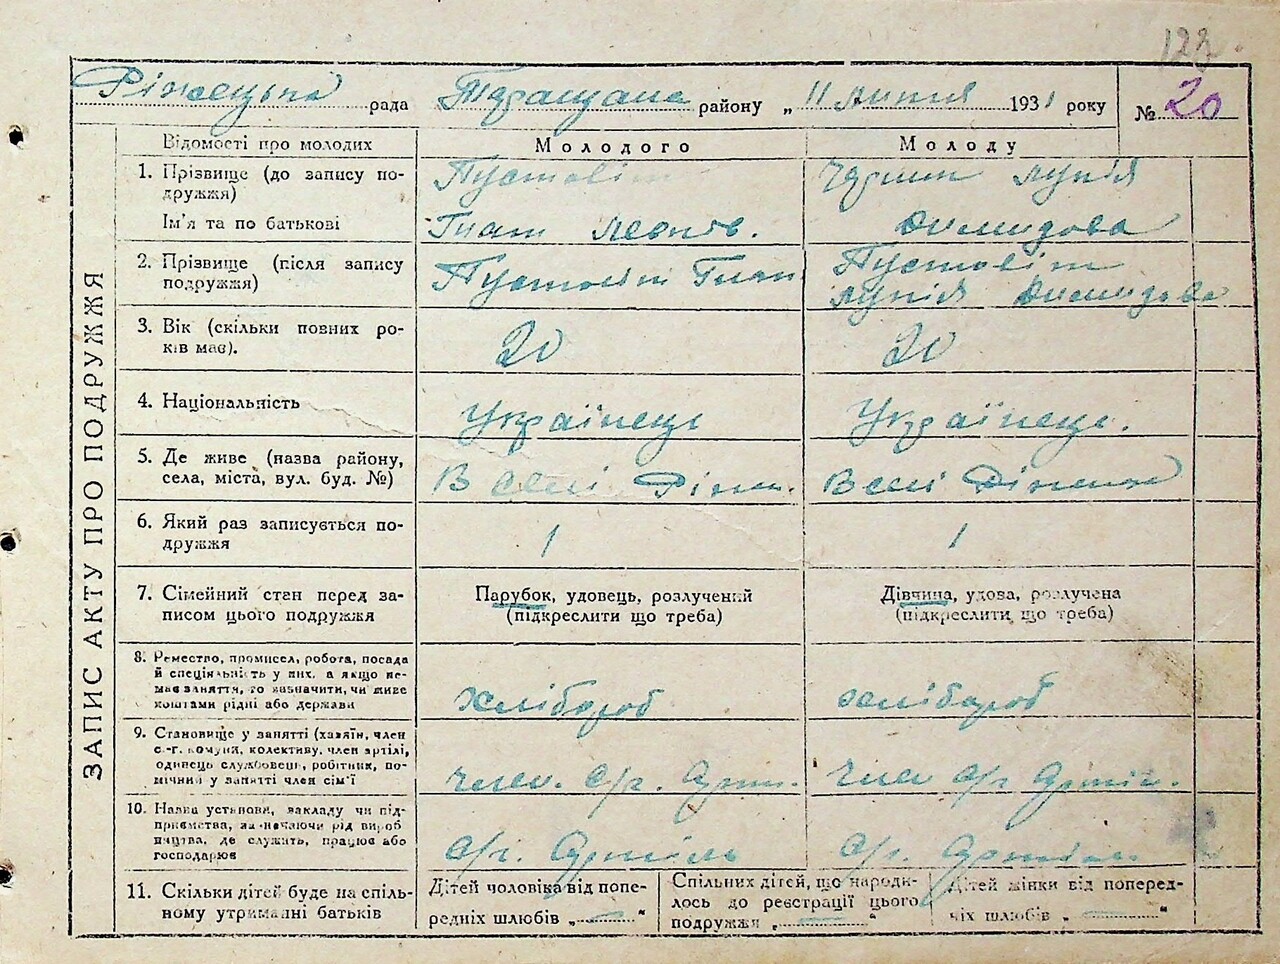 123.
Ріжецька рада Таращан. району „ 11 лютня 1931 року № 20
ЗАПИС АКТУ ПРО ПОДРУЖЖЯ
Відомості про молодих Молодого Молоду
1. Прізвище (до запису по-
дружжя)
Пустовіт
Лукія
Ім'я та по батькові
Гнат Леонт.
Демидова
2. Прізвище (після запису
подружжя)
Пустовіт Гнат
Пустовіт
Лукія Демидова
3. Вік (скільки повних ро-
ків має).
20 20
4. Національність
Українець Українець.
5. Де живе (назва району,
села, міста, вул. буд. №)
В селі Ріж. В селі Ріжках
6. Який раз записується по-
дружжя
1 1
7. Сімейний стан перед за-
писом цього подружжя
Парубок, удовець, розлучений
(підкреслити що треба)
Дівчина, удова, розлучена
(підкреслити що треба)
8. Ремество, промисел, робота, посада
й спеціяльність у них, а якщо не-
має заняття, то визначити, чи живе
коштами рідні або держави
хлібороб хлібороб
9. Становище у занятті (хазяїн, член
с.-г. комуни, колективу, член артілі,
одинець службовець, робітник, по-
мічний у занятті член сім'ї
член. с/г. Арт. Член с/г Артіл.
10. Назва установи, закладу чи під-
приємства, зазначаючи рід вироб
ництва, де служить, працює або
господарює
с/г. Артіль с/г. Артіль
11. Скільки дітей буде на спіль-
ному утриманні батьків
Дітей чоловіка від попе-
редніх шлюбів „ — “
Спільних дітей, що народи-
лось до реєстрації цього
подружжя „ — “
Дітей жінки від поперед-
ніх шлюбів „ — “